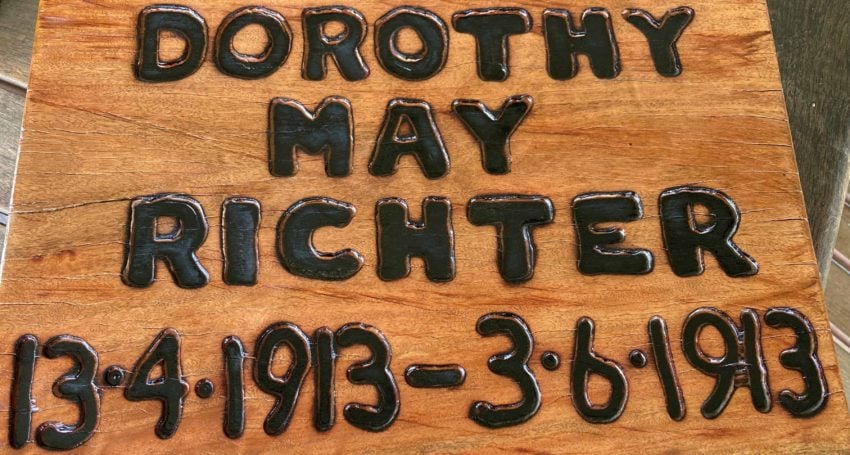 DOROTHY
MAY
RICHTER
13·4·1913 – 3·6·1913